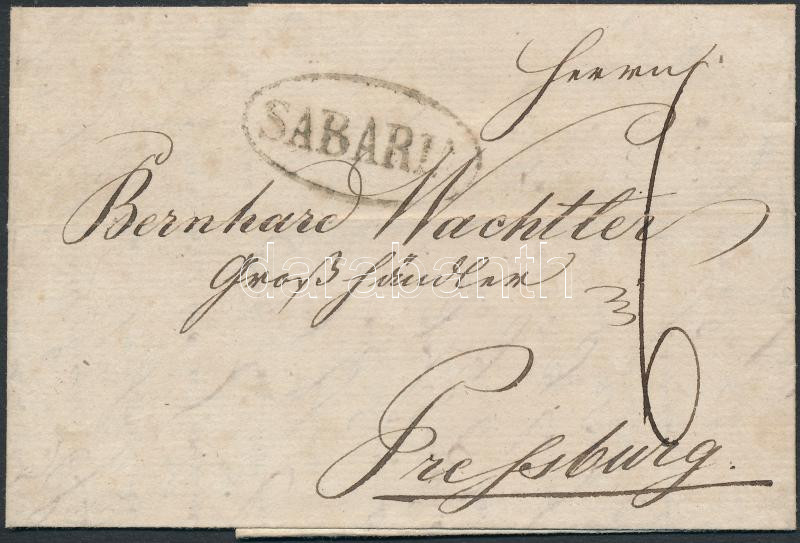 Herrn
SABARIA
Bernhard Wachtler
Großhändler
darabanth
Pressburg.
6